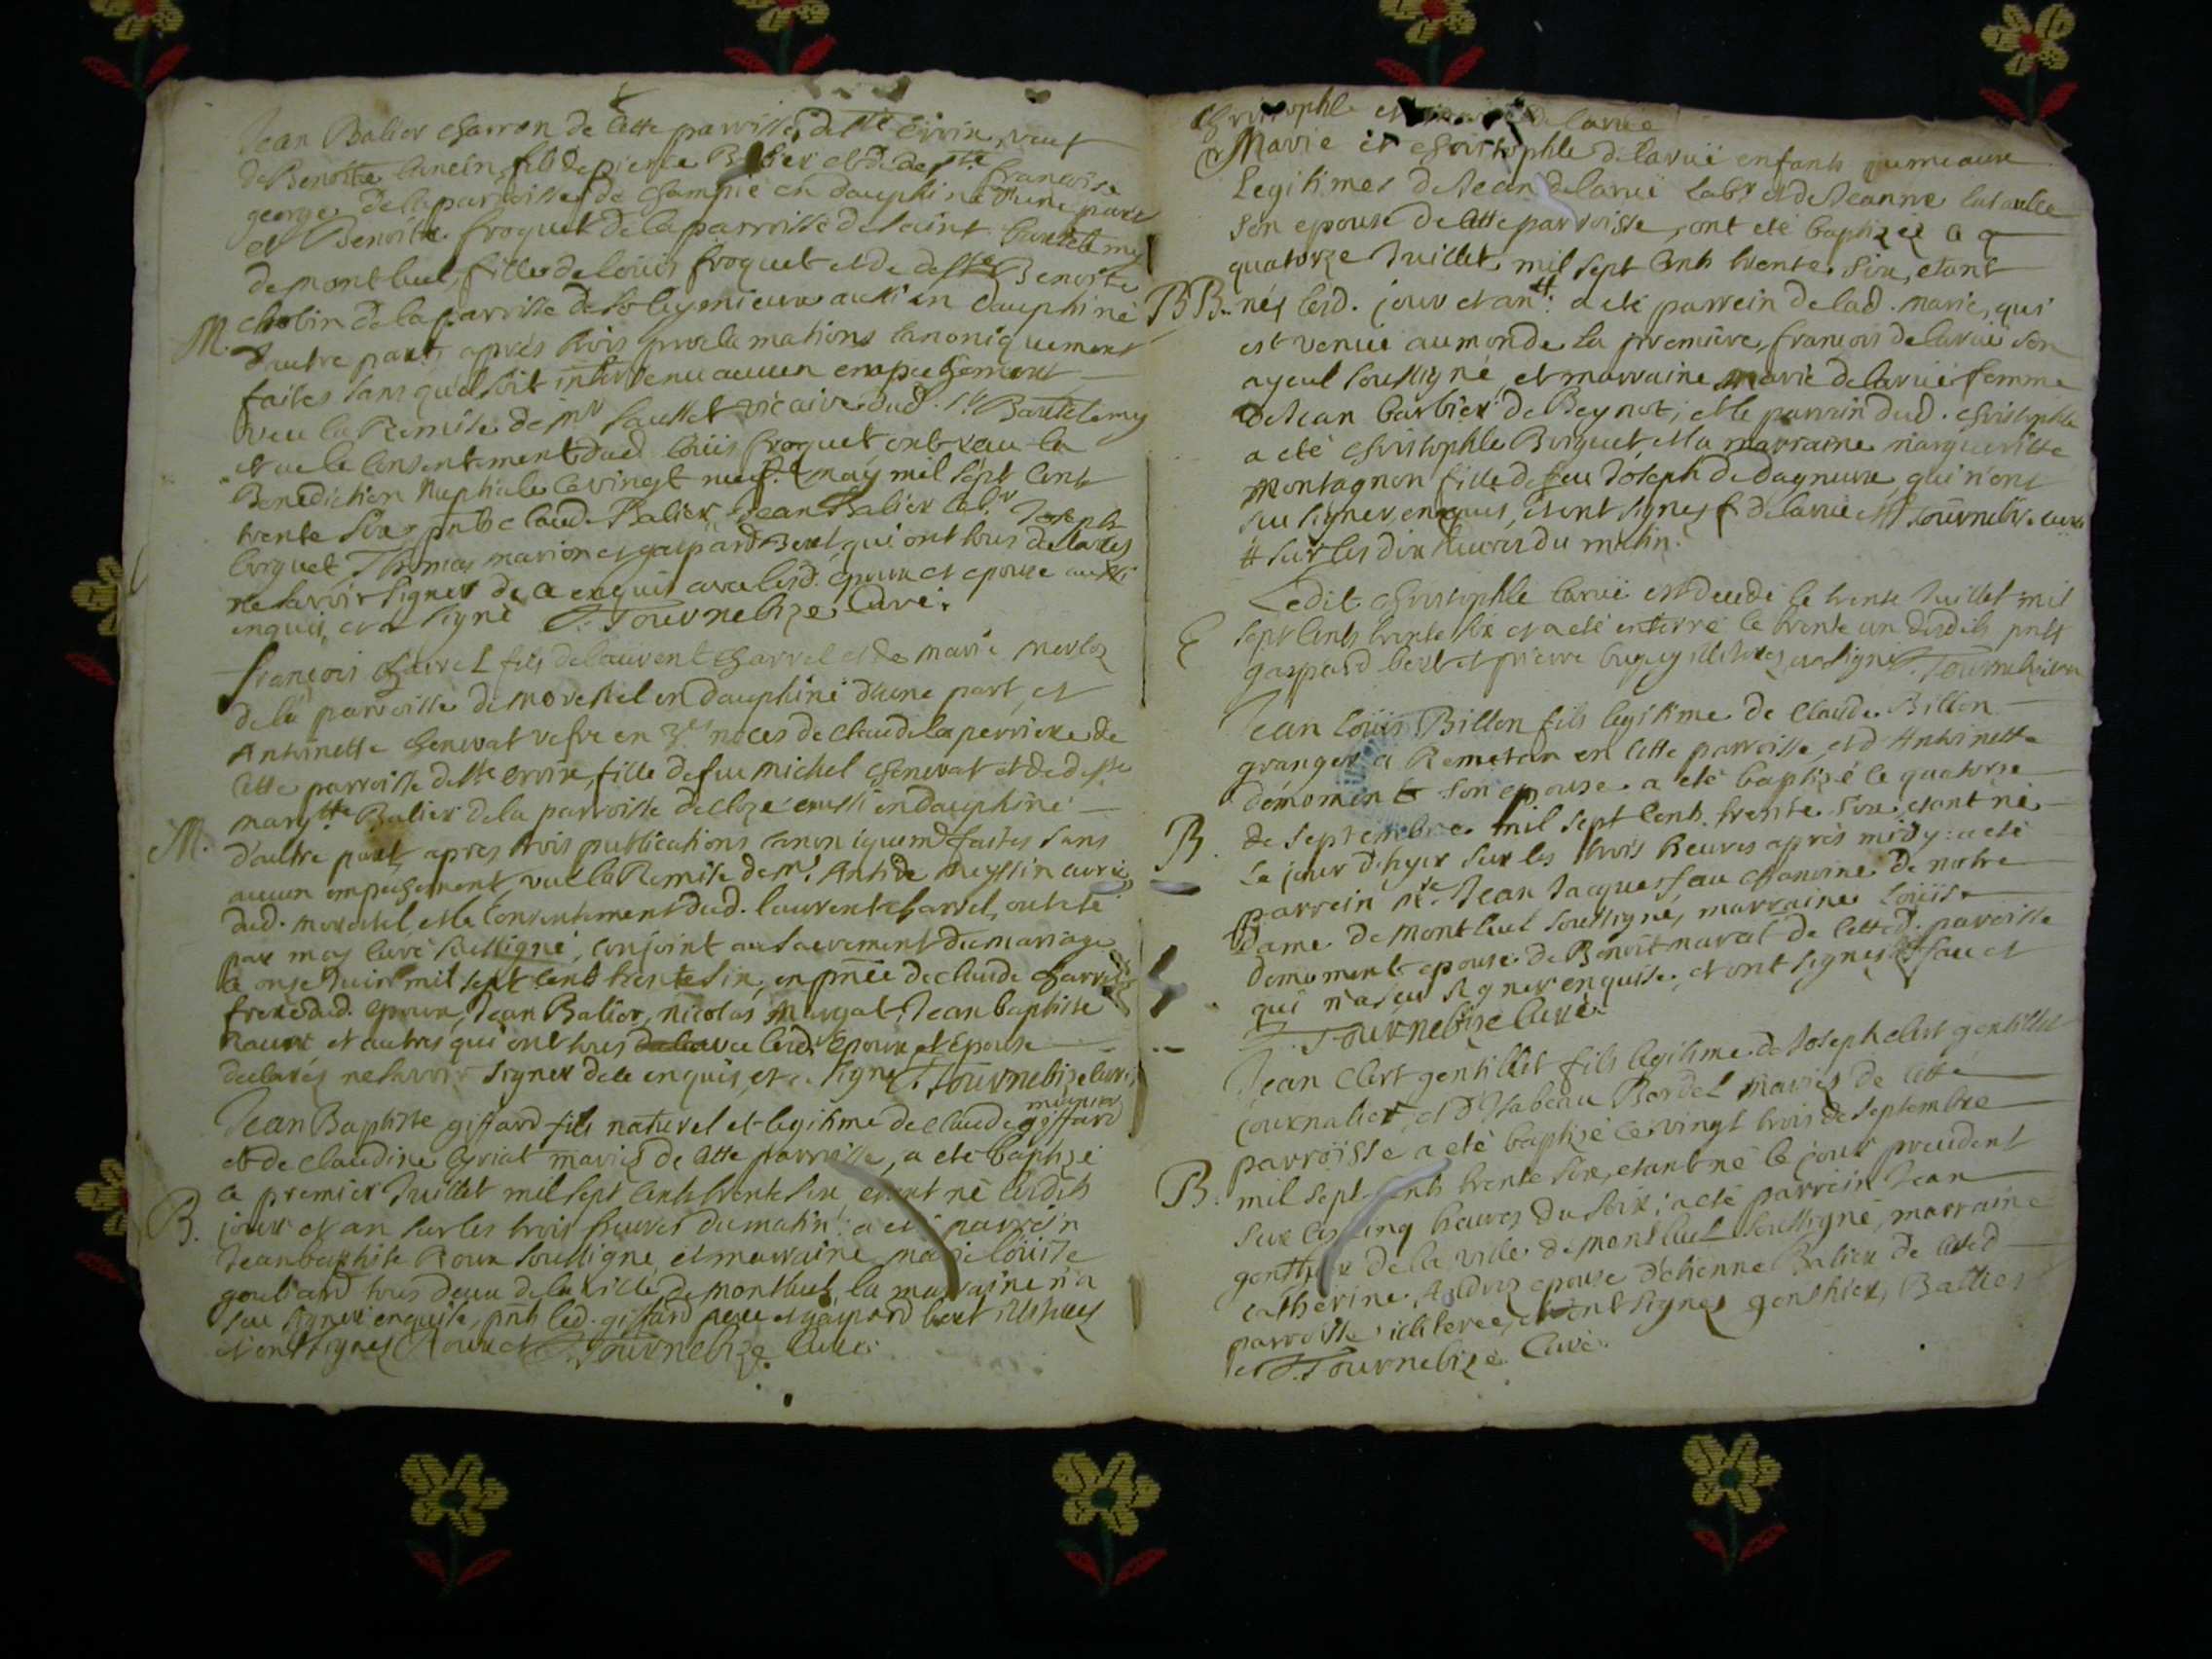 Jean Balier charron de cette parroisse de Ste Croix, veuf
de Benoîte lancin, fils de pierre Balier et de deffte françoise
george de la parroisse de Champié en dauphiné d'une part
et Benoîte froquet de la parroisse de saint barthelemy
de montluel, fille de loüis froquet et de deffte Benoîte
cholin de la parroisse de aussi en dauphiné
M. d'autre part, après trois proclamations canoniquement
faites sans qu'il soit intervenu aucun empechement
veu la Remise de mr sausset vicaire dud. St Barthelemy
et vu le consentement dud. loüis froquet ont reçu la
Benediction Nuptiale ce vingt neuf may mil sept cents
trente six, pnts claude Balier, Jean Balier labr Joseph
burquet Thomas marion et gaspard Bert, qui ont tous declarés
ne savoir signer de ce enquis avec lesd. epoux et epouse aussi
enquis, et a signé J. Tournebize Curé.
françois charvet fils de laurent charvet et de marie merloz
de la parroisse de morestel en dauphiné d'une part, et
Antoinette chenevat vefve en 3es noces de claude laperriere de
cette parroisse de Ste croix, fille de feu michel chenevat et de deffte
margtte Balier de la parroisse de cloze aussi en dauphiné
M. d'autre part, apres trois publications canoniquemt faites sans
aucun empechement, vue la Remise de mr. Antide meyssin curé
dud. morestel, et le consentement dud. laurent charvet, ont eté
par moy curé soussigné, conjoint au sacrement de mariage
le onze Juin mil sept cents trente six, en pnce de claude charvet
frere dud. epoux, Jean Balier, nicolas murgat, Jean baptiste
naurt et autres qui ont tous avec lesd. Epoux et Epouse
declarés ne savoir signer de ce enquis, et a signé J. Tournebize curé
meunier
Jean Baptiste giffard fils naturel et legitime de claude giffard
et de claudine cyriat mariés de cette parroisse, a eté baptizé
B. ce premier Juillet mil sept cents trente six, etant né lesdits
jour et an sur les trois heures du matin: a eté parrein
Jean baptiste Roux soussigné, et marraine marie loüise
gouliard tous deux de la ville de montluel, la marraine n'a
seu signer enquise, pnts led. giffard pere et gaspard bert illiterés
et ont signés Roux et J. Tournebize Curé.
Christophle et marie de larue
Marie et christophle delaruë enfants jumeaux
Legitimes de Jean delaruë labr et de Jeanne lataulle
son epouse de cette parroisse, ont eté baptizés ce
quatorze Juillet mil sept cents trente six, etant
BB. nés lesd. jour et an #: a eté parrein de lad. marie, qui
est venüe au monde la première, françois delaruë son
ayeul soussigné, et marraine marie delaruë femme
de Jean barbier de Beynot; et le parrein dud. christophle
a eté christophle Burquet et la marraine marguerite
montagnon fille de feu Joseph de dagneux, qui n'ont
seu signer, enquis, et ont signés f delaruë et J Tournebize curé
# sur les dix heures du matin.
Ledit christophle laruë est decedé le trente Juillet mil
E sept cents trente six et a eté enterré le trente un desdits pnts
gaspard bert et pierre bugey illiterés, et a signé J. Tournebize curé
Jean Loüis Billon fils legitime de Claude Billon
granger a Remetan en cette parroisse, et d'Antoinette
démoment son epouse a eté baptizé le quatorze
B. de septembre mil sept cents trente six, etant né
le jour d'hyer sur les trois heures après midy: a eté
parrein Mre Jean Jacques fau chanoine de notre
Dame de montluel soussigné, marraine Loüise
demoment epouse de Benoît marat de cetted. paroisse
qui n'a seu signer enquise, et ont signés fau et
J. Tournebize curé.
Jean Clert gentillet fils legitime de Joseph clert gentillet
journalier, et d'Isabeau Bordel mariés de cette
parroisse a eté baptizé ce vingt trois de septembre
B. mil sept cents trente six, etant né le jour precedent
sur les cinq heures du soir; a eté parrein Jean
gonthier de la ville de montluel soussigné, marraine
catherine Andruz epouse d'etienne Balier de cetted.
parroisse illiterée, et ont signés gonthier, Ballet
et J. Tournebize Curé.